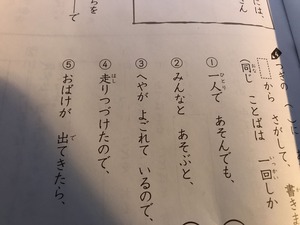 つぎの
から さがして、書きま
(同じ ことばは 一回しか
①一人で あそんでも、
②みんなと あそぶと、
③へやが よごれて いるので、
④走りつづけたので、
⑤おばけが 出てきたら、
には、
さん
らを